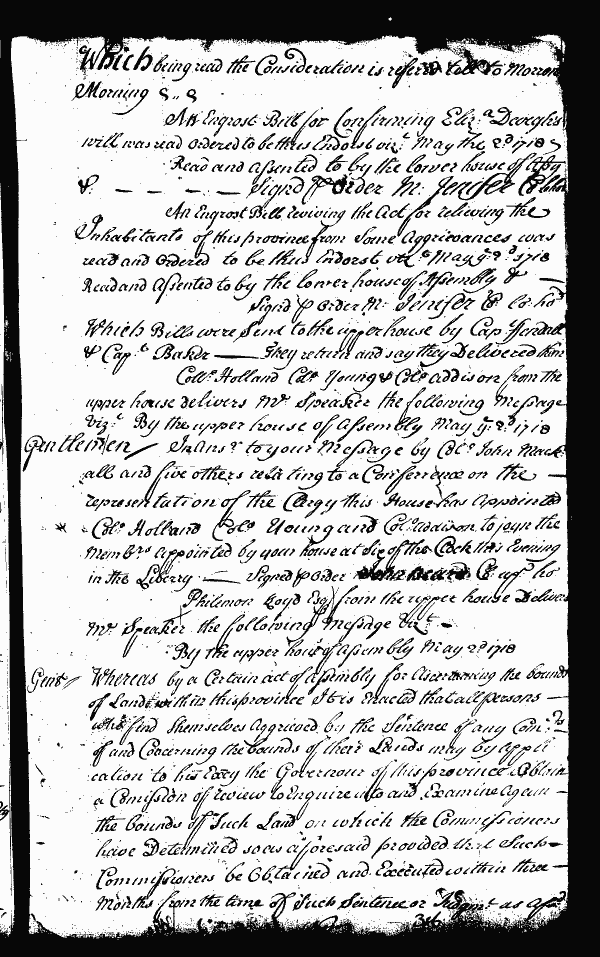 Which being read the Consideration is referd till to Morrow
Morning
An Engrost Bill for Confirming Eliz.a
will was read ordered to be thus Endorst viz.t May the 2.d 1718
Read and assented to by the lower house of
&. — — — — Signd p Order M. Jenifer Cl
An Engrost Bill reviving the Act for relieving the
Inhabitants of this province from Some Aggrievances was
read and ordered to be thus Endorst viz.t May y.e 2.d 1718
Read and assented to by the lower house of Assembly & —
Signd p Order M. Jenifer Cl. lo: ho
Which Bills were Sent to the upper house by Cap.t
& Cap.t Baker — They return and say they Delivered them
Coll.o Holland Col.o Young & Col.o addison from the
upper house delivers Mr. Speaker the following Message
viz.t By the upper house of Assembly May y.e 2.d 1718
Gentlemen / In Ans.r to your Message by Col.o John Mack
all and five others relating to a Conferrence on the —
representation of the Clergy this House has appointed
Col.o Holland Col.o Young and Col.o addison to joyn the
Memb.rs appointed by your house at six of the Clock this Evening
in the Library — Signed p Order Cl. up.r ho
Philemon Loyd Esq.r from the upper house Delivers
Mr. Speaker the following Message viz.t —
By the upper house of assembly May 2.d 1718
Gent.n Whereas by a Certain act of assembly for ascertaining the bounds
of Land within this province It is Enacted that all persons —
who find themselves Aggrieved by the Sentence of any Com.rs
of and Concerning the bounds of their Lands may by appli
cation to his Excy the Governour of this province Obtain
a Comission of review to Enquire into and Examine Again —
the bounds of Such Land on which the Commissioners
have Determined so as aforesaid provided that Such —
Commissioners be Obtained and Executed within three —
Months from the time of Such Sentence or Judgm.t as afs.d